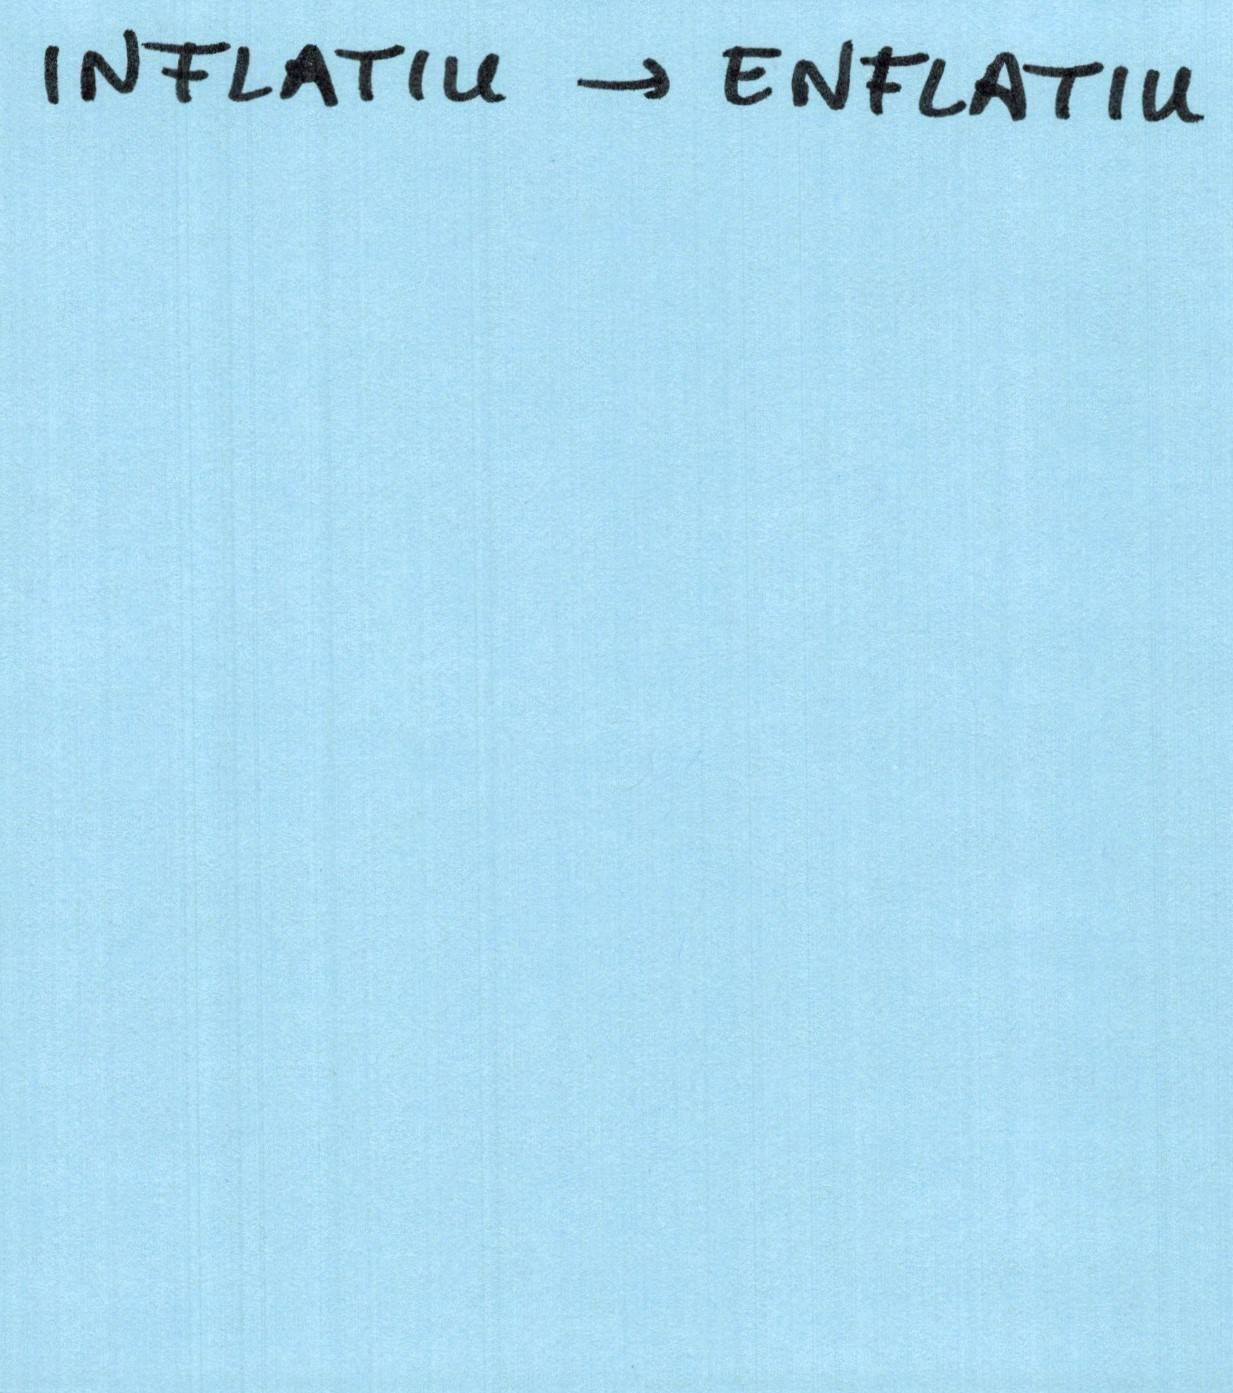 INFLATIU → ENFLATIU